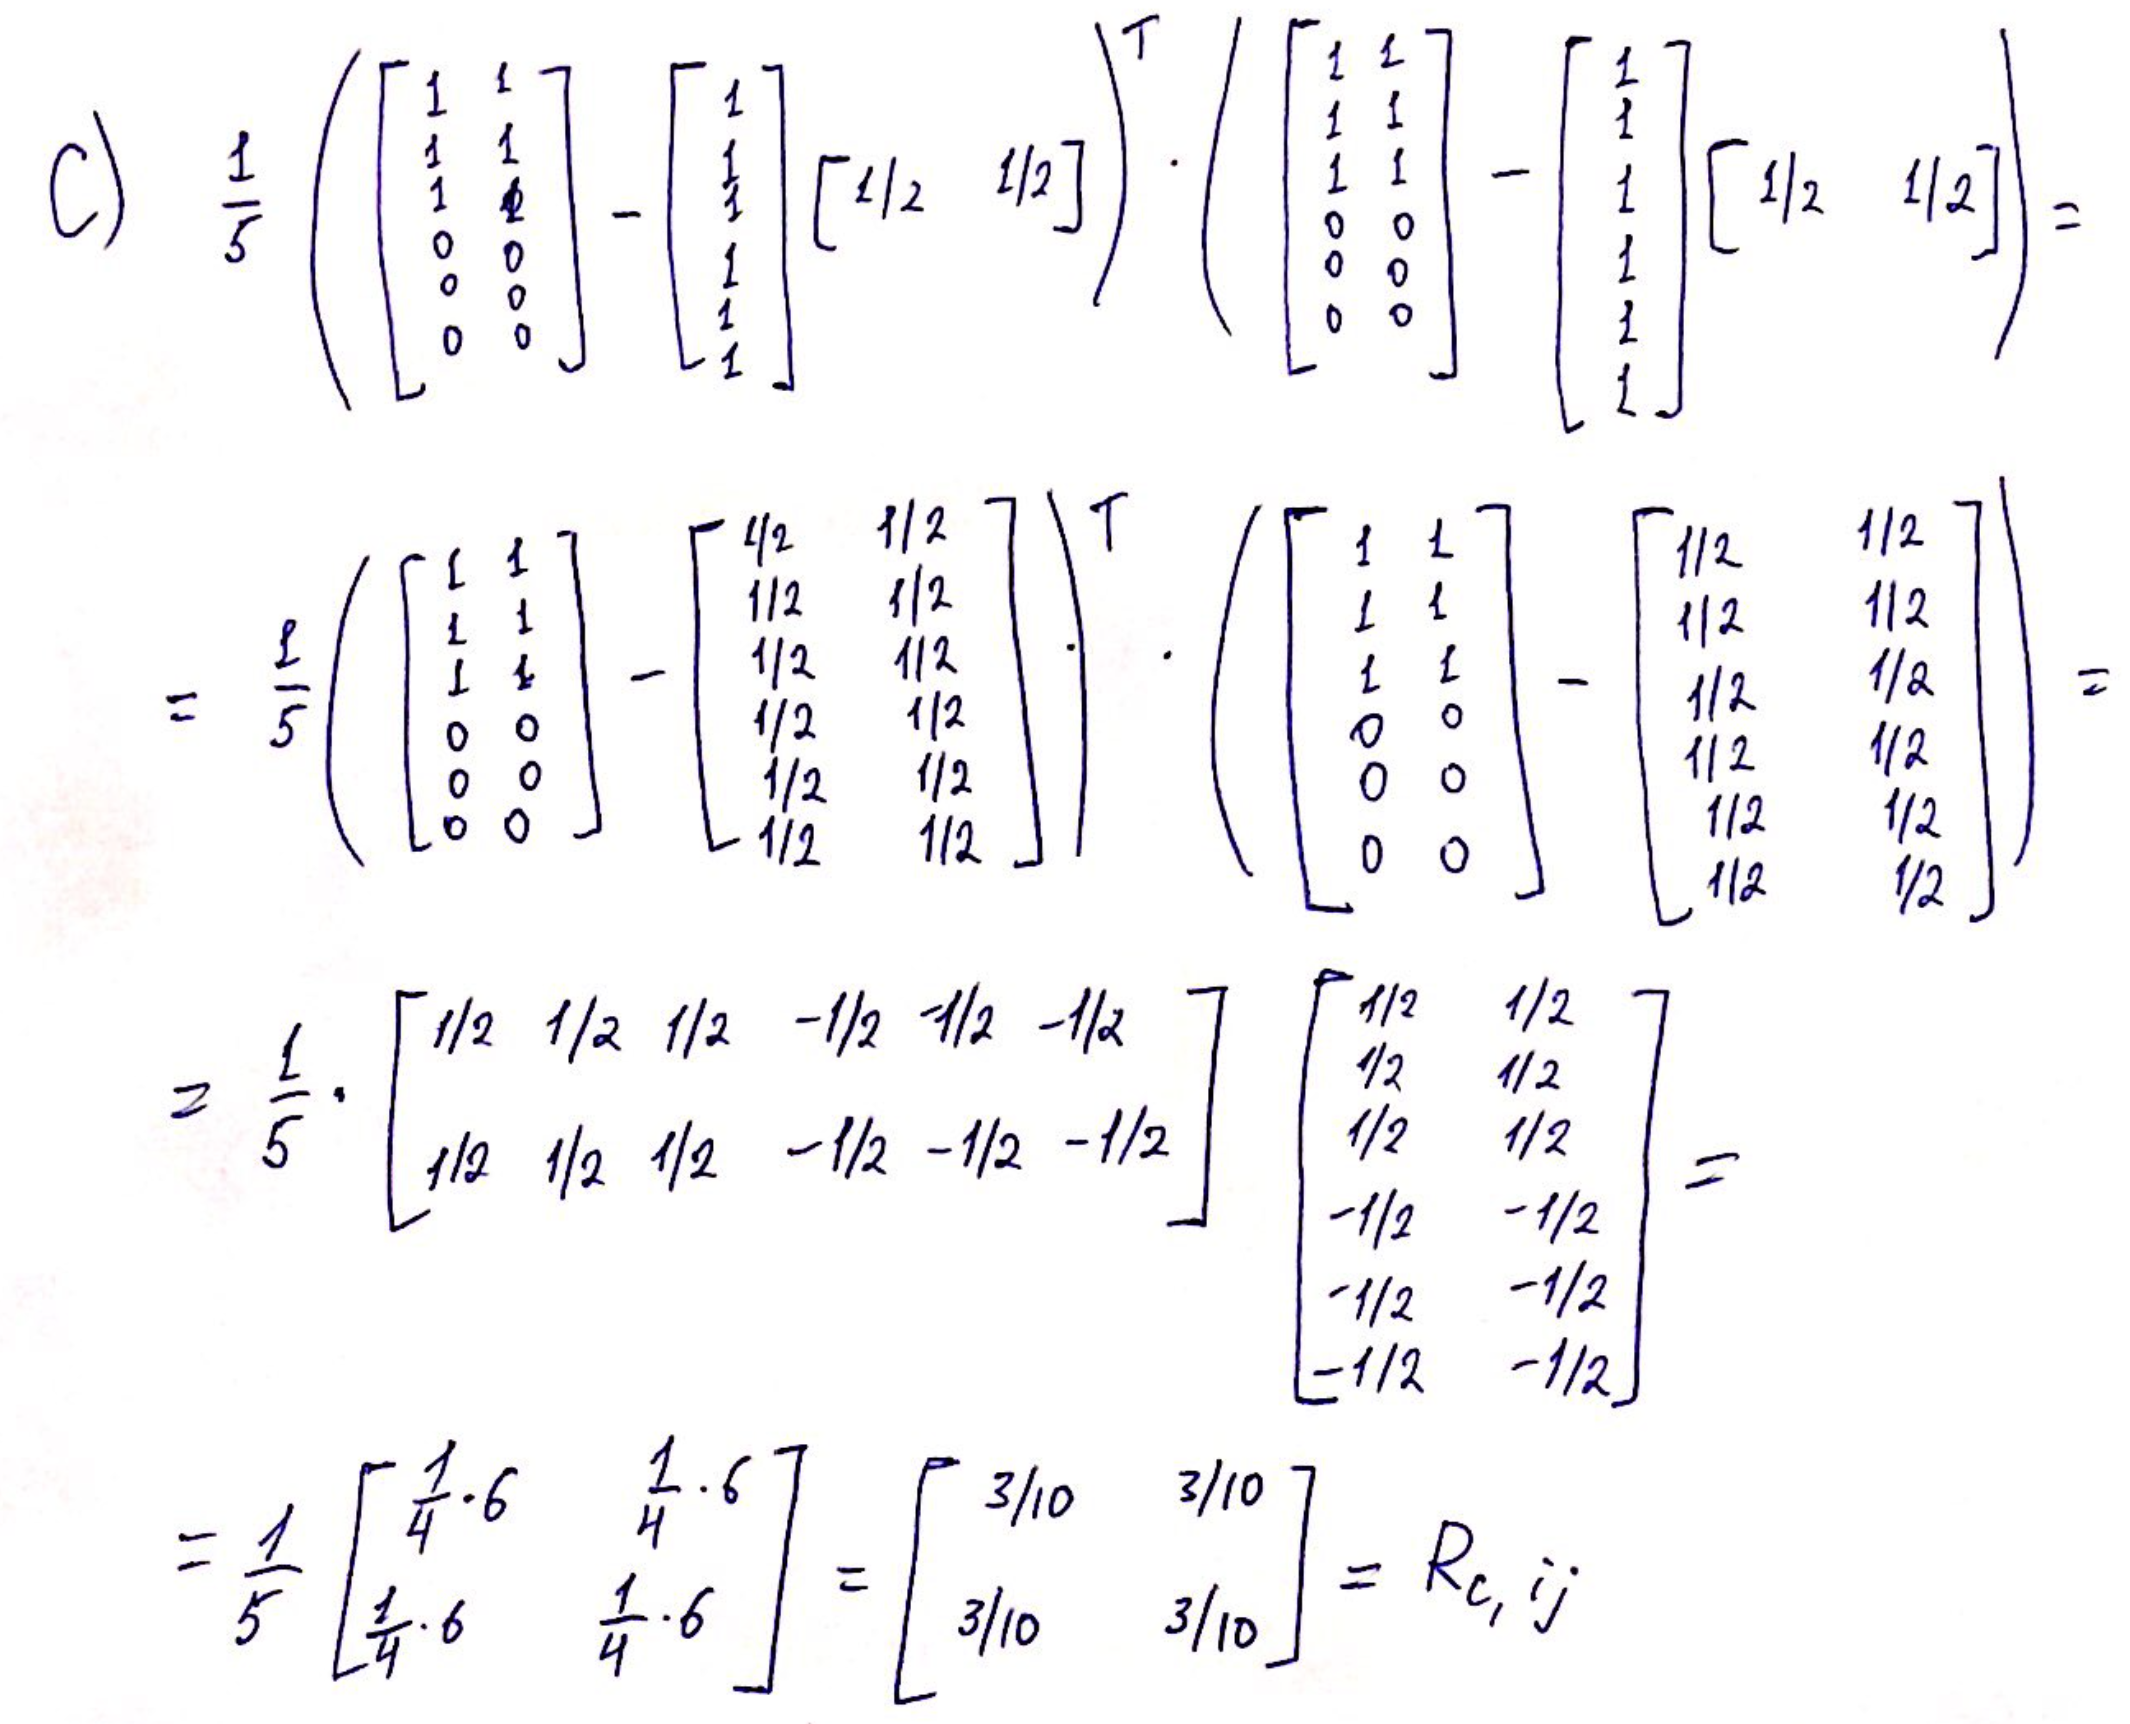 C) 1/5 ( [1 1; 1 1; 1 1; 0 0; 0 0; 0 0] - [1; 1; 1; 1; 1; 1] [1/2 1/2] )^T · ( [1 1; 1 1; 1 1; 0 0; 0 0; 0 0] - [1; 1; 1; 1; 1; 1] [1/2 1/2] ) =
= 1/5 ( [1 1; 1 1; 1 1; 0 0; 0 0; 0 0] - [1/2 1/2; 1/2 1/2; 1/2 1/2; 1/2 1/2; 1/2 1/2; 1/2 1/2] )^T · ( [1 1; 1 1; 1 1; 0 0; 0 0; 0 0] - [1/2 1/2; 1/2 1/2; 1/2 1/2; 1/2 1/2; 1/2 1/2; 1/2 1/2] ) =
= 1/5 · [1/2 1/2 1/2 -1/2 -1/2 -1/2; 1/2 1/2 1/2 -1/2 -1/2 -1/2] [1/2 1/2; 1/2 1/2; 1/2 1/2; -1/2 -1/2; -1/2 -1/2; -1/2 -1/2] =
= 1/5 [1/4·6 1/4·6; 1/4·6 1/4·6] = [3/10 3/10; 3/10 3/10] = R_c, ij